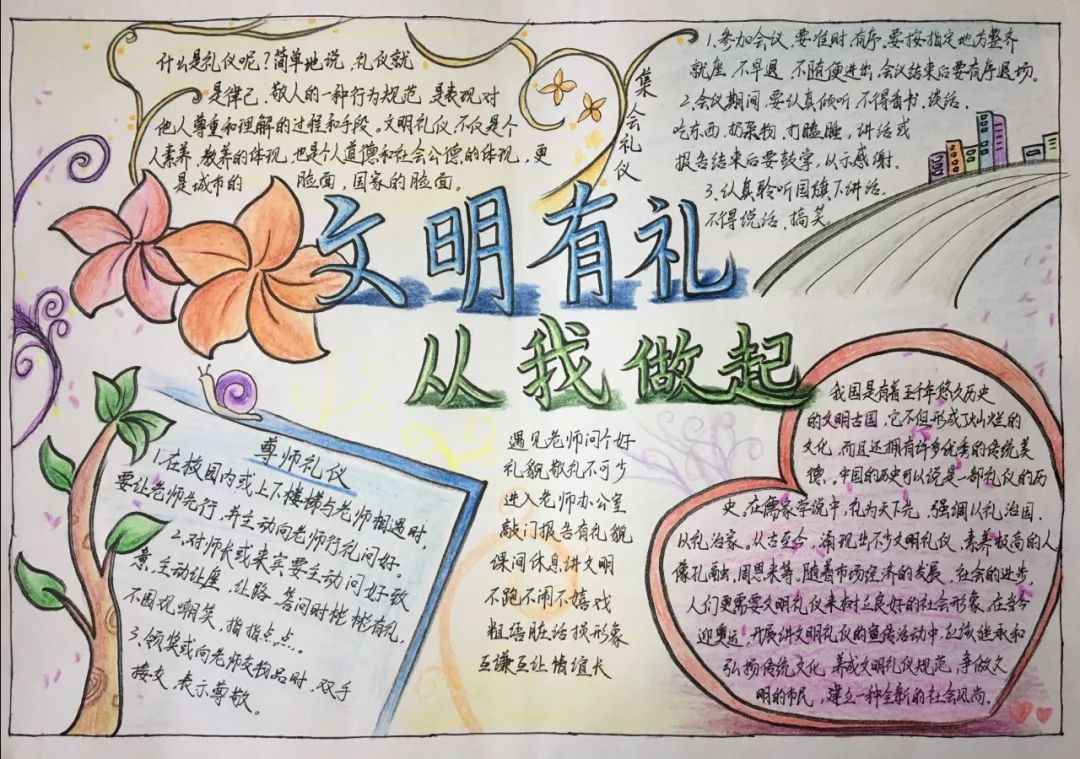 什么是礼仪呢?简单地说,礼仪就
是律己、敬人的一种行为规范,是表现对
他人尊重和理解的过程和手段。文明礼仪,不仅是个
人素养、教养的体现,也是个人道德和社会公德的体现,更
是城市的 脸面,国家的脸面。
集会礼仪
1、参加会议,要准时,有序。要按指定地方整齐
就座,不早退,不随便进出,会议结束后要有序退场。
2、会议期间,要认真倾听,不得看书,谈话,
吃东西,扔杂物,打瞌睡,讲话或
报告结束后要鼓掌,以示感谢.
3、认真聆听国旗下讲话,
不得说话,搞笑。
文明有礼
从我做起
尊师礼仪
1、在校园内或上下楼梯与老师相遇时,
要让老师先行,并主动向老师行礼问好。
2、对师长或来宾要主动问好致
意,主动让座,让路,答问时彬彬有礼,
不围观嘲笑,指指点点...
3、领奖或向老师交物品时,双手
接交,表示尊敬。
遇见老师问个好
礼貌敬礼不可少
进入老师办公室
敲门报告有礼貌
课间休息讲文明
不跑不闹不嬉戏
粗语脏话损形象
互谦互让情谊长
我国是有着五千年悠久历史
的文明古国,它不但形成了灿烂的
文化,而且还拥有许多优秀的传统美
德。中国的历史可以说是一部礼仪的历
史,在儒家学说中,礼为天下先,强调以礼治国,
以礼治家。从古至今,涌现出不少文明礼仪,素养极高的人,
像孔融,周恩来等,随着市场经济的发展,社会的进步,
人们更需要文明礼仪来树立良好的社会形象,在当今
迎奥运,开展讲文明礼仪的宣传活动中,应该继承和
弘扬传统文化,养成文明礼仪规范,争做文
明的市民,建立一种全新的社会风尚。